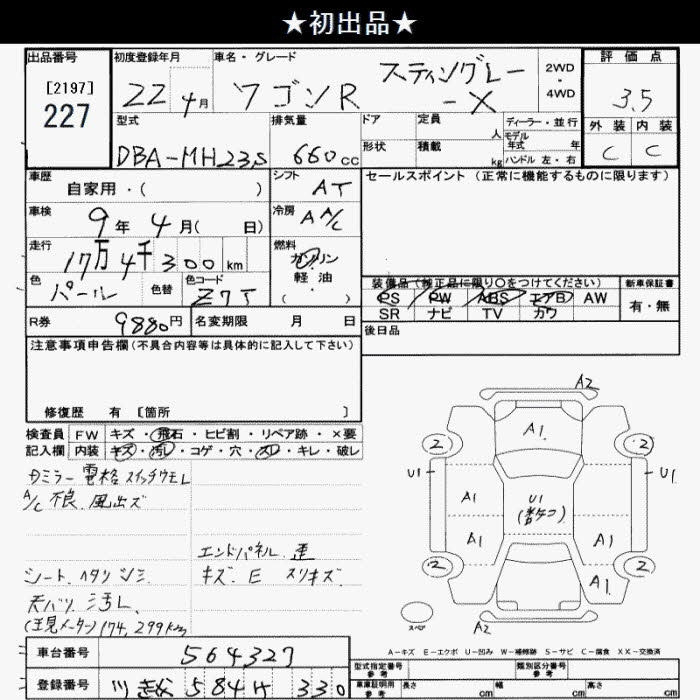 ★初出品★
出品番号
[2197]
227
初度登録年月
22年 4月
車名・グレード
ワゴンR
スティングレー
-X
2WD
・
4WD
評価点
3.5
外装 内装
C C
型式
DBA-MH23S
排気量
660cc
ドア
形状
定員 人
積載 kg
ディーラー・並行
モデル年式 年
ハンドル 左・右
車歴
自家用・( )
シフト
AT
セールスポイント (正常に機能するものに限ります)
車検
9年 4月( 日)
冷房
AA/C
走行
17万4千300km
燃料
ガソリン
軽油・
( )
色
パール
色替
色コード
Z7T
装備品(純正品に限り○をつけてください)
PS PW ABS エアB AW
SR ナビ TV カワ
新車保証書
有・無
R券
9880円
名変期限 月 日
後日品
注意事項申告欄(不具合内容等は具体的に記入して下さい)
修復歴 有 [箇所 ]
検査員
記入欄
FW キズ・飛石・ヒビ割・リペア跡・×要
内装 キズ・汚れ・コゲ・穴・スレ・キレ・破レ
Dミラー 電格 スイッチ
A/C 不良 風出ズ
エンドパネル 歪
シート ヘタリ シミ
キズ E スリキズ
天バリ 汚レ
174,299km
A2
A1
2
2
U1
U1
A1
U1
A1
A1
A1
2
2
A2
スペア
A-キズ E-エクボ U-凹み W-補修跡 S-サビ C-腐食 XX-交換済
車台番号
564327
登録番号
川越 584 330
型式指定番号
参考
類別区分番号
参考
車庫証明用
参考
長さ cm
幅 cm
高さ cm